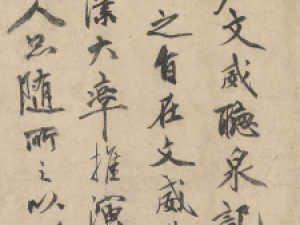 文威聽泉記
之旨在文威
大率推演
人只隨所之以